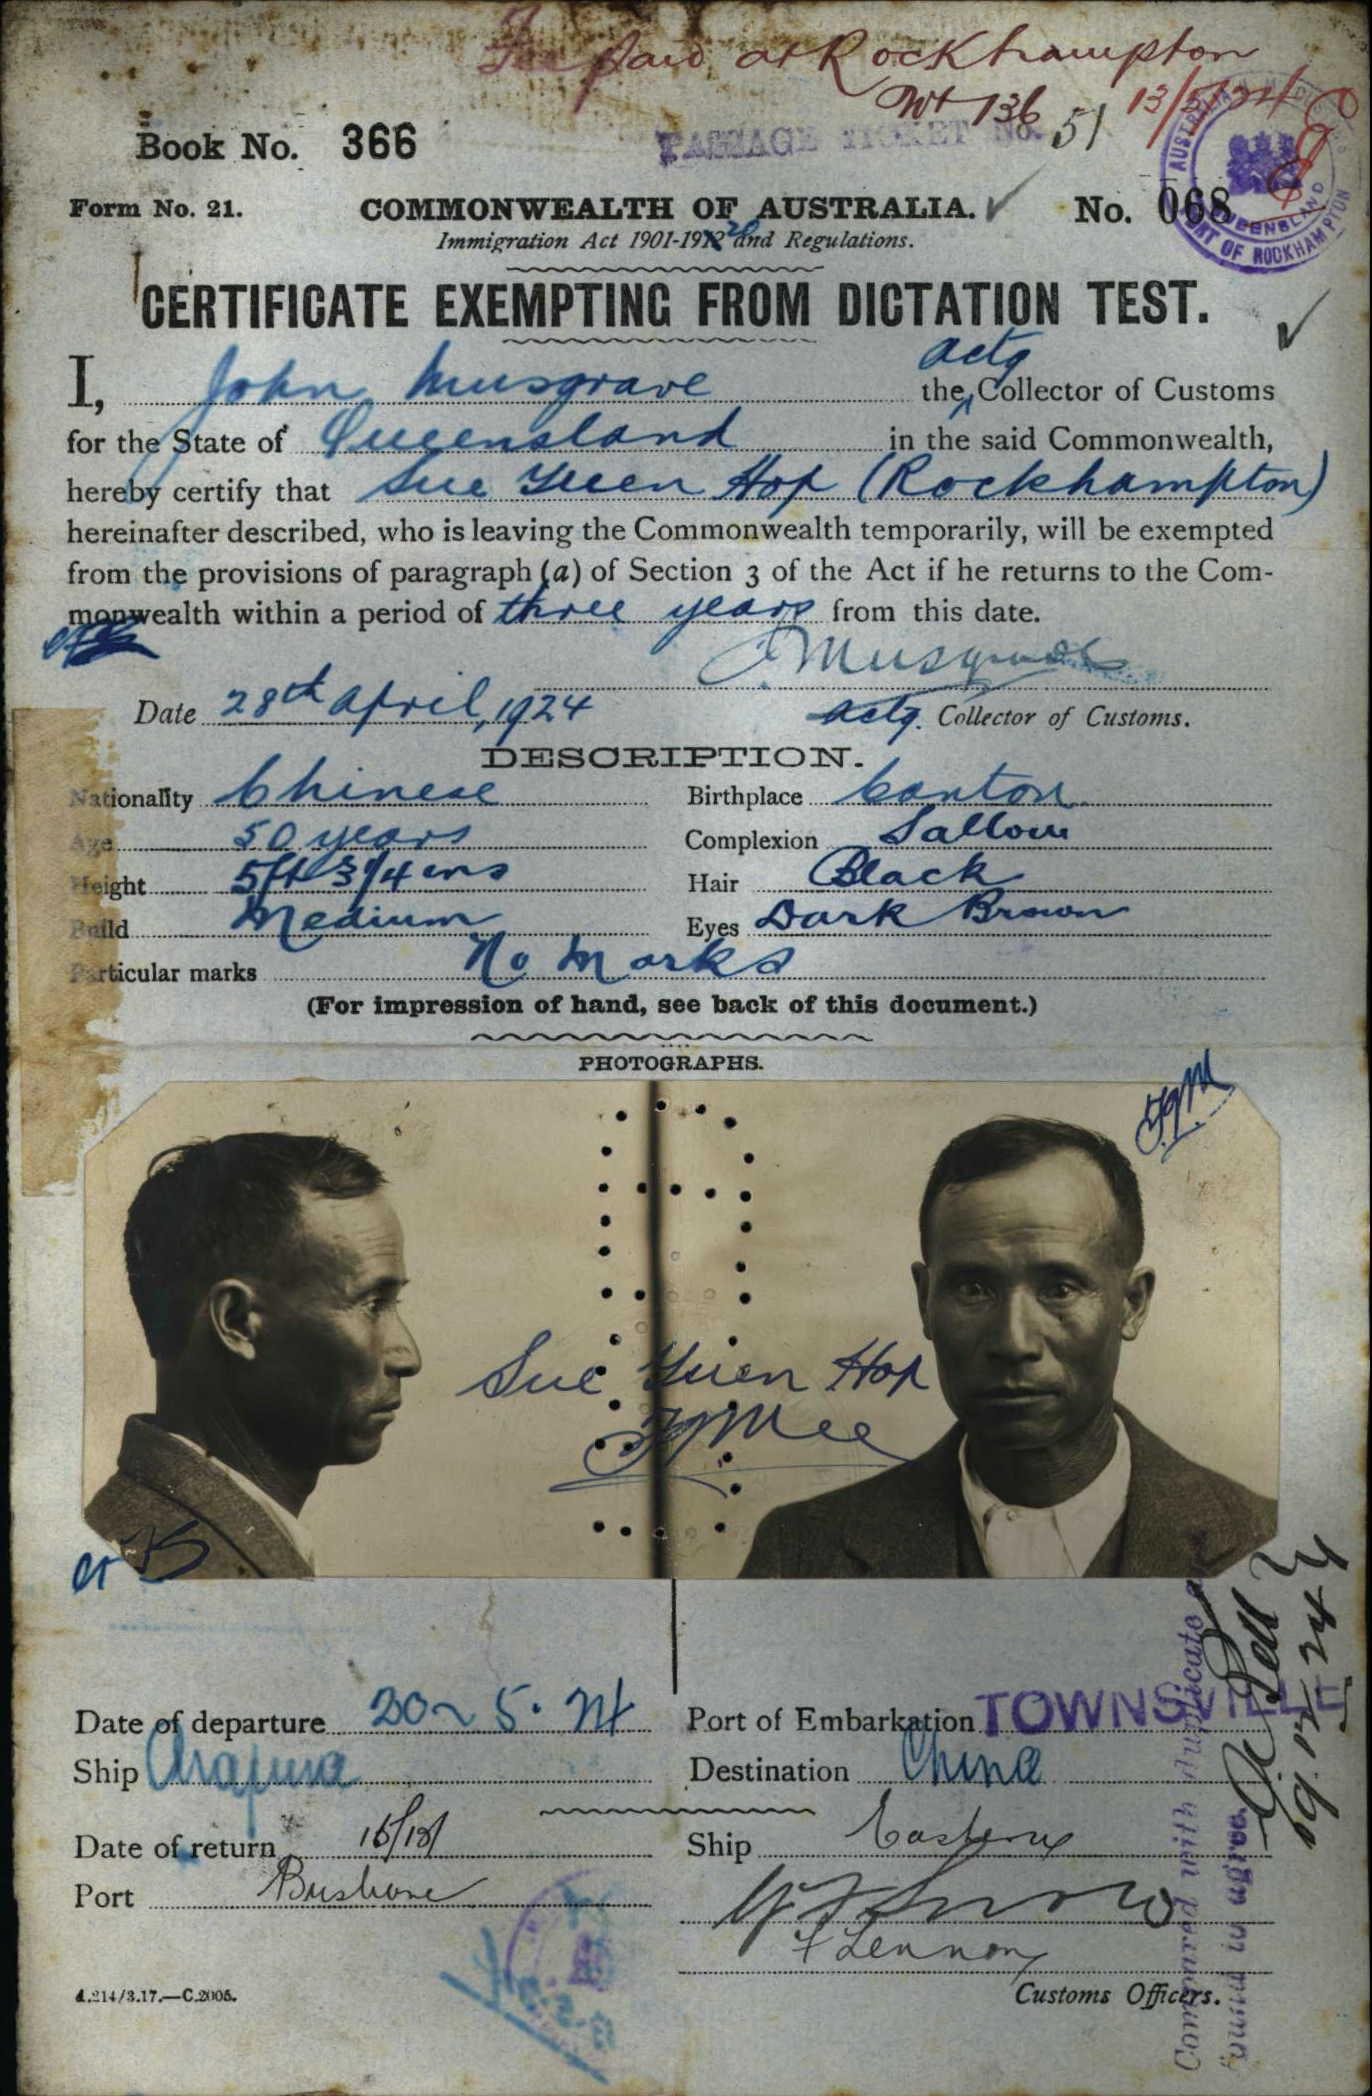 Fee paid at Rockhampton
13/5/24
PASSAGE TICKET No. 51
Book No. 366
Form No. 21.
COMMONWEALTH OF AUSTRALIA.
No. 068
AUSTRALIA
QUEENSLAND
PORT OF ROCKHAMPTON
Immigration Act 1901-1912 20 and Regulations.
CERTIFICATE EXEMPTING FROM DICTATION TEST.
I, John Musgrave the actg Collector of Customs
for the State of Queensland in the said Commonwealth,
hereby certify that Sue Yuen Hop (Rockhampton)
hereinafter described, who is leaving the Commonwealth temporarily, will be exempted
from the provisions of paragraph (a) of Section 3 of the Act if he returns to the Com-
monwealth within a period of three years from this date.
J Musgrave
Date 28th April, 1924 actg. Collector of Customs.
DESCRIPTION.
Nationality Chinese Birthplace Canton
Age 50 years Complexion Sallow
Height 5ft 3 1/4 ins Hair Black
Build Medium Eyes Dark Brown
Particular marks No Marks
(For impression of hand, see back of this document.)
PHOTOGRAPHS.
Sue Yuen Hop
Date of departure 20 5. 24 Port of Embarkation TOWNSVILLE
Ship Arafura Destination China
Date of return 16/12/ Ship Eastern
Port Brisbane
F Lennon
Customs Officers.
A.214/3.17.—C.2005.
Compared with duplicate
found to agree.
19.12.24